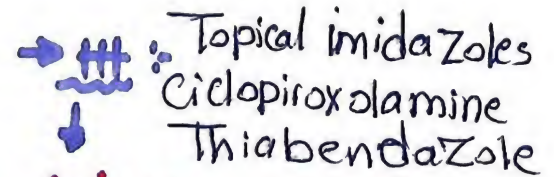 Topical imidazoles
Ciclopiroxolamine
Thiabendazole